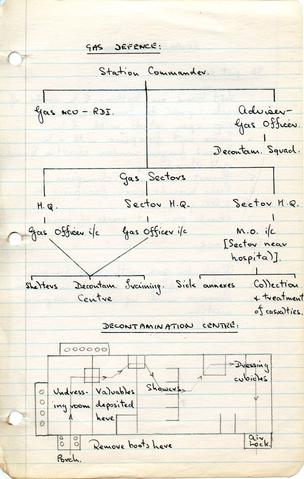 GAS DEFENCE:
Station Commander.
Gas NCO - RDI.
Adviser-
Gas Officer.
Decontam. Squad.
Gas Sectors
H.Q.
Sector H.Q.
Sector H.Q.
Gas Officer i/c
Gas Officer i/c
M.O. i/c
[Sector near
hospital)].
Shelters
Decontam.
Centre
Training.
Sick annexes
Collection
& treatment
of casualties.
DECONTAMINATION CENTRE:
Undress-
ing room
Valuables
deposited
here
Showers
Dressing
cubicles
Porch.
Remove boots here
Air
Lock.